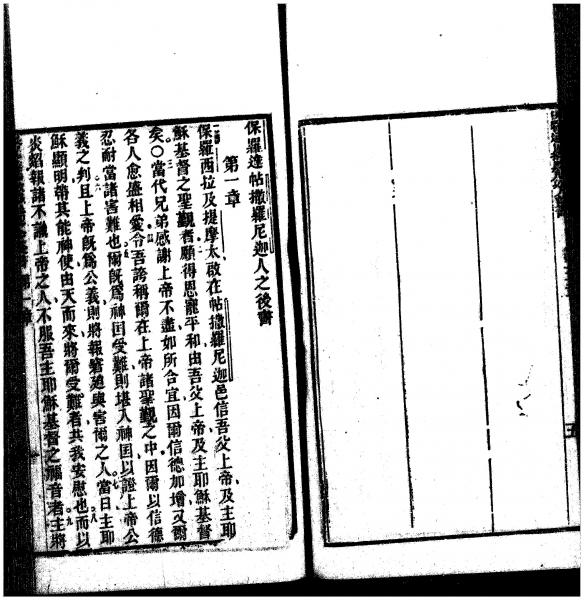 保羅達帖撒羅尼迦人之後書
第一章
保羅西拉及提摩太啟在帖撒羅尼迦邑信吾父上帝及主耶
穌基督之聖觀者願得恩寵平和由吾父上帝及主耶穌基督
矣〇當代兄弟感謝上帝不盡如所合宜因爾信德加增又爾
各人愈盛相愛令吾誇稱爾在上帝諸聖觀之中因爾以信德
忍耐當諸害難也爾既為神囯受難則堪入神囯以證上帝公
義之判且上帝既為公義則將報窘廹與害爾之人當日主耶
穌顯明帶其能神使由天而來將爾受難者共我安慰也而以
炎熖報諸不識上帝之人不服吾主耶穌基督之福音者主將